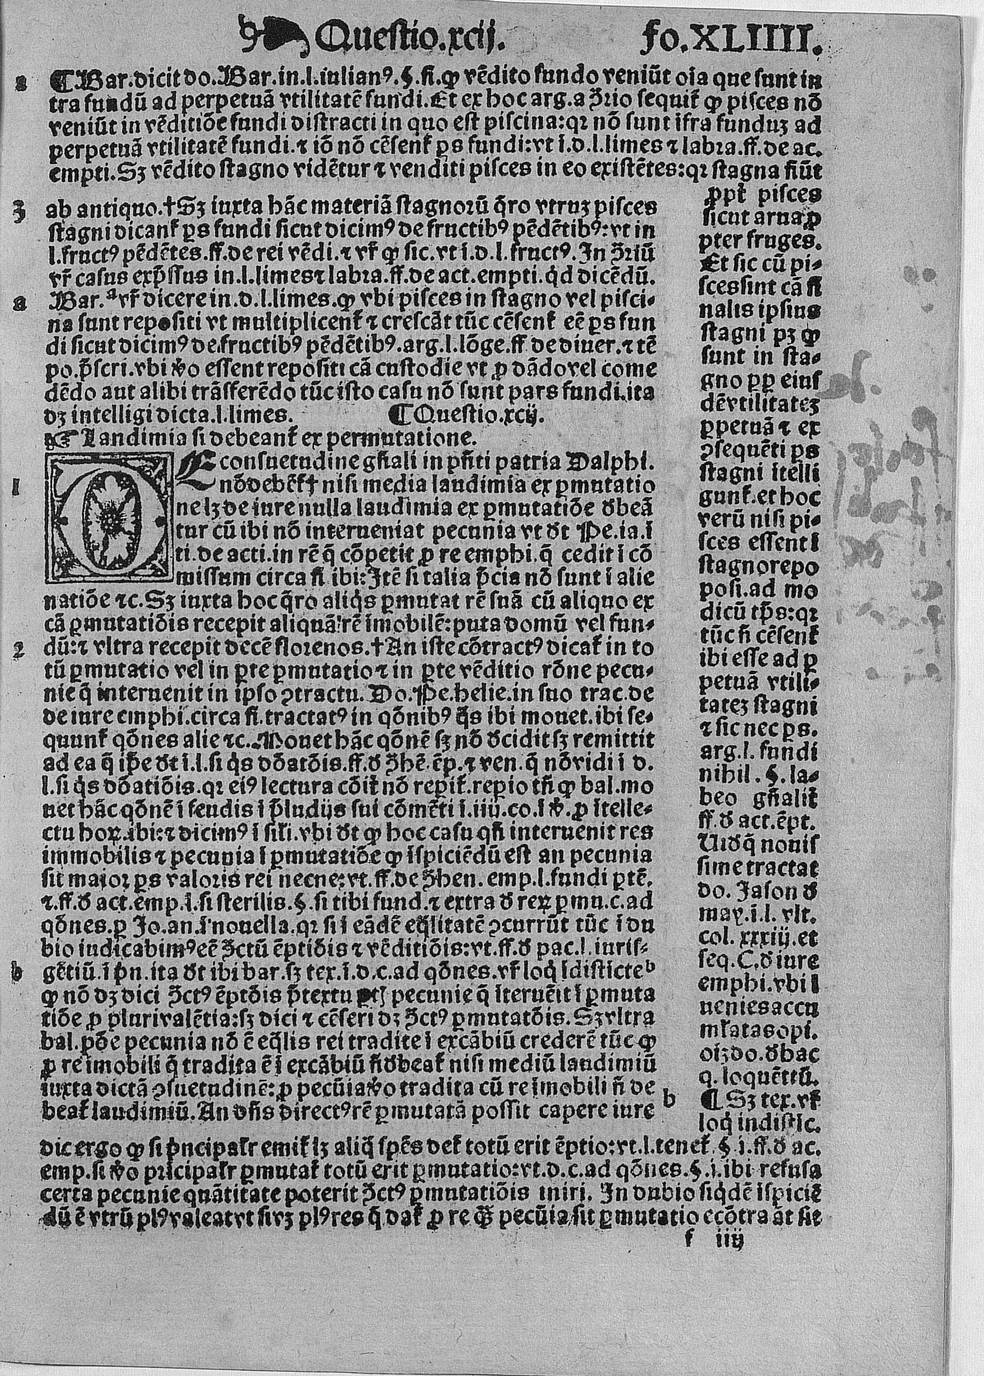 Questio.xcij. fo.XLIIII.
a ¶ Bar. dicit do. Bar. in.l.iulianꝰ.§.fi.ꝙ vēdito fundo veniūt oīa que sunt in
tra fundū ad perpetuā vtilitatē fundi. Et ex hoc arg. a ꝯ̄rio sequit̄ ꝙ pisces nō
veniūt in vēditiōe fundi distracti in quo est piscina: qꝛ nō sunt īfra funduꝫ ad
perpetuā vtilitatē fundi. ⁊ iō nō cēsent̄ ꝑs fundi: vt ī.d.l.limes ⁊ labra.ff. de ac.
empti. Sꝫ vēdito stagno vidētur ⁊ venditi pisces in eo existētes: qꝛ stagna fiūt
3 ab antiquo.†Sꝫ iuxta hāc materiā stagnorū q̄ro vtruꝫ pisces
stagni dicant̄ ꝑs fundi sicut dicimꝰ de fructibꝰ pēdētibꝰ: vt in
l.fructꝰ pēdētes.ff. de rei vēdi. ⁊ vr̄ ꝙ sic. vt ī.d.l.fructꝰ. In ꝯ̄riū
vr̄ casus exp̄ssus in.l.limes ⁊ labra.ff. de act. empti. qd dicēdū.
a Bar.ᵃ vr̄ dicere in.d.l.limes. ꝙ vbi pisces in stagno vel pisci-
na sunt repositi vt multiplicent̄ ⁊ crescāt tūc cēsent̄ eē ꝑs fun
di sicut dicimꝰ de.fructibꝰ pēdētibꝰ. arg.l.lōge.ff de diuer. ⁊ tē
po. p̄scri. vbi v̊o essent repositi cā custodie vt ꝓ dādo vel come
dēdo aut alibi trāsferēdo tūc isto casu nō sunt pars fundi. ita
dꝫ intelligi dicta.l.limes. ¶ Questio.xcij.
☞ Laudimia si debeant̄ ex permutatione.
DE consuetudine gn̄ali in pn̄ti patria Dalphi.
1 nō debēt̄† nisi media laudimia ex ꝑmutatio
ne lꝫ de iure nulla laudimia ex ꝑmutatiōe d̄beā
tur cū ibi nō interueniat pecunia vt dt̄ Pe. ia. ī
ti. de acti. in rē q̄ cōpetit ꝓ re emphi. q̄ cedit ī cō
missum circa fi. ibi: Itē si talia p̄cia nō sunt ī alie
natiōe ⁊c. Sꝫ iuxta hoc q̄ro aliq̄s ꝑmutat rē suā cū aliquo ex
cā ꝑmutatiōis recepit aliquā rē īmobilē: puta domū vel fun-
2 dū: ⁊ vltra recepit decē florenos.†An iste cōtractꝰ dicat̄ in to
tū ꝑmutatio vel in ꝑte ꝑmutatio ⁊ in ꝑte vēditio rōne pecu-
nie q̄ interuenit in ipso ꝯtractu. Do. Pe. helie. in suo trac. de
de iure emphi. circa fi. tractatꝰ in qōnibꝰ q̄s ibi mouet. ibi se-
quunt̄ qōnes alie ⁊c. Mouet hāc qōnē sꝫ nō d̄cidit sꝫ remittit
ad ea q̄ ip̄e dt̄ ī.l.si q̄s dōatōis.ff. d̄ ꝯ̄hē. ēp. ⁊ ven. q̄ nō vidi ī d.
l.si q̄s dōatiōis. qꝛ eiꝰ lectura cōit̄ nō reꝑit̄. reꝑio tn̄ ꝙ bal. mo
uet hāc qōnē ī feudis ī p̄ludijs sui cōmēti ī.iiij.co.ī v̊. ꝓ ītelle-
ctu hoꝝ. ibi: ⁊ dicimꝰ ī sil̄i. vbi dt̄ ꝙ hoc casu qn̄ interuenit res
immobilis ⁊ pecunia ī ꝑmutatiōe ꝙ īspiciēdū est an pecunia
sit maior ꝑs valoris rei necne: vt.ff. de ꝯ̄hen. emp.l.fundi ꝑtē.
⁊.ff. d̄ act. emp.l.si sterilis.§.si tibi fund. ⁊ extra d̄ reꝝ ꝑmu.c.ad
qōnes. ꝑ Jo. an. ī nouella. qꝛ si ī eādē eq̄litatē ꝯcurrūt tūc ī du
bio iudicabimꝰ eē ꝯ̄ctū ēptiōis ⁊ vēditiōis: vt.ff. d̄ pac.l.iuris-
b gētiū. ī pn̄. ita dt̄ ibi bar. sꝫ tex. ī.d.c. ad qōnes. vr̄ loq̄ īdistīcteᵇ
ꝙ nō dꝫ dici ꝯ̄ctꝰ ēptōis p̄textu pecunie q̄ īteruēit ī ꝑmuta
tiōe ꝓ plurivalētia: sꝫ dici ⁊ cēseri dꝫ ꝯ̄ctꝰ ꝑmutatōis. Sꝫ vltra
bal. pōe pecunia nō ē eq̄lis rei tradite ī excābiū crederē tūc ꝙ
ꝓ re imobili q̄ tradita ē ī excābiū n̄ d̄beat̄ nisi mediū laudimiū
iuxta dictā ꝯsuetudinē: ꝓ pecūia v̊o tradita cū re īmobili n̄ de
beat̄ laudimiū. An dn̄s directꝰ rē ꝑmutatā possit capere iure
ꝓpt̄ pisces
sicut arua ꝓ
pter fruges.
Et sic cū pi-
sces sint cā fi
nalis ipsius
stagni pꝫ ꝙ
sunt in sta-
gno ꝓp̄ eius
dē vtilitateꝫ
ꝑpetuā ⁊ ex
ꝯsequēti ꝑs
stagni ītelli
gunt̄. et hoc
verū nisi pi-
sces essent ī
stagno repo
posi. ad mo
dicū tp̄s: qꝛ
tūc n̄ cēsent̄
ibi esse ad ꝑ
petuā vtili-
tateꝫ stagni
⁊ sic nec ꝑs.
arg.l.fundi
nihil.§.la-
beo gn̄alit̄
ff. d̄ act. ēpt.
Uidq̄ nouis
sime tractat
do. Jason d̄
may. ī.l.vlt.
col.xxxiij. et
seq. C. d̄ iure
emphi. vbi ī
uenies accu
ml̄atas opi.
oīꝫ do. d̄ hac
q. loquētiū.
b ¶ Sꝫ tex. vr̄
loq̄ indistīc.
dic ergo ꝙ si pncipalr̄ emit̄ lꝫ aliq̄ spēs det̄ totū erit ēptio: vt.l.tenet̄.§.i.ff. d̄ ac.
emp. si v̊o pricipalr̄ ꝑmutat̄ totū erit ꝑmutatio: vt.d.c.ad qōnes.§.i. ibi refusa
certa pecunie quātitate poterit ꝯ̄ctꝰ ꝑmutatiōis iniri. In dubio siq̄dē īspiciē
dū ē vtrū plꝰ valeat vt si vꝫ plꝰ res q̄ dat̄ ꝓ re q̄ꝫ pecūia sit ꝑmutatio ecōtra āt sit
f iiij